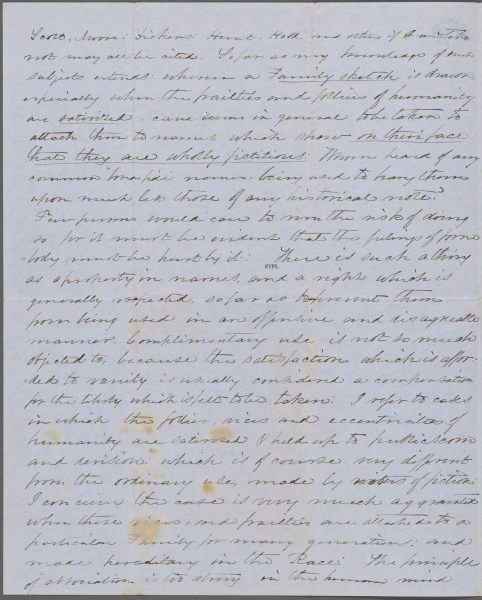 Scott, Moore, Dickens, Hunt, Hall and others of
not may all be cited. So far as my knowledge of such
subjects extends wherein a Family sketch is drawn
especially when the frailties and follies of humanity
are satirized, care seems in general to be taken to
attach them to names which show on their face
that they are wholly fictitious. Whoever heard of any
common names being used to hang them
upon, much less those of any historical note?
Few persons would care to run the risk of doing
so, for it must be evident that the feelings of some
body must be hurt by it. There is such a thing
NYPL
as a property in names, and a right which is
generally respected, so far as to prevent them
from being used in an offensive and disagreeable
manner. Complimentary use is not so much
objected to, because the satisfaction which is affor-
ded to vanity is usually considered a compensation
for the liberty which is felt to be taken. I refer to cases
in which the follies, vices and eccentricities of
humanity are satirized & held up to public scorn
and derision which is of course very different
from the ordinary use, made by writers of fiction.
I conceive the case is very much aggravated
when these vices, and frailties are attached to a
particular Family for many generations; and
made hereditary in the Race. The principle
of association is too strong in the human mind